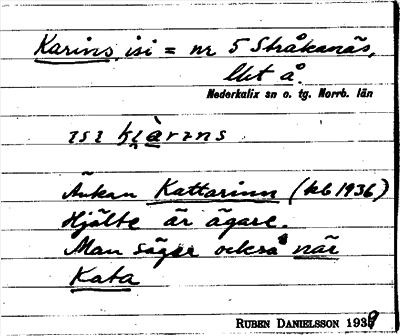 Karins, isi = nr 5 Stråkanäs,
litt å.
Nederkalix sn o. tg. Norrb. län
ɪsɪ ki̯àrɪns
Änkan Kattarinn (kb 1936)
Hjälte är ägare.
Man säger också når
Kata
RUBEN DANIELSSON 1939